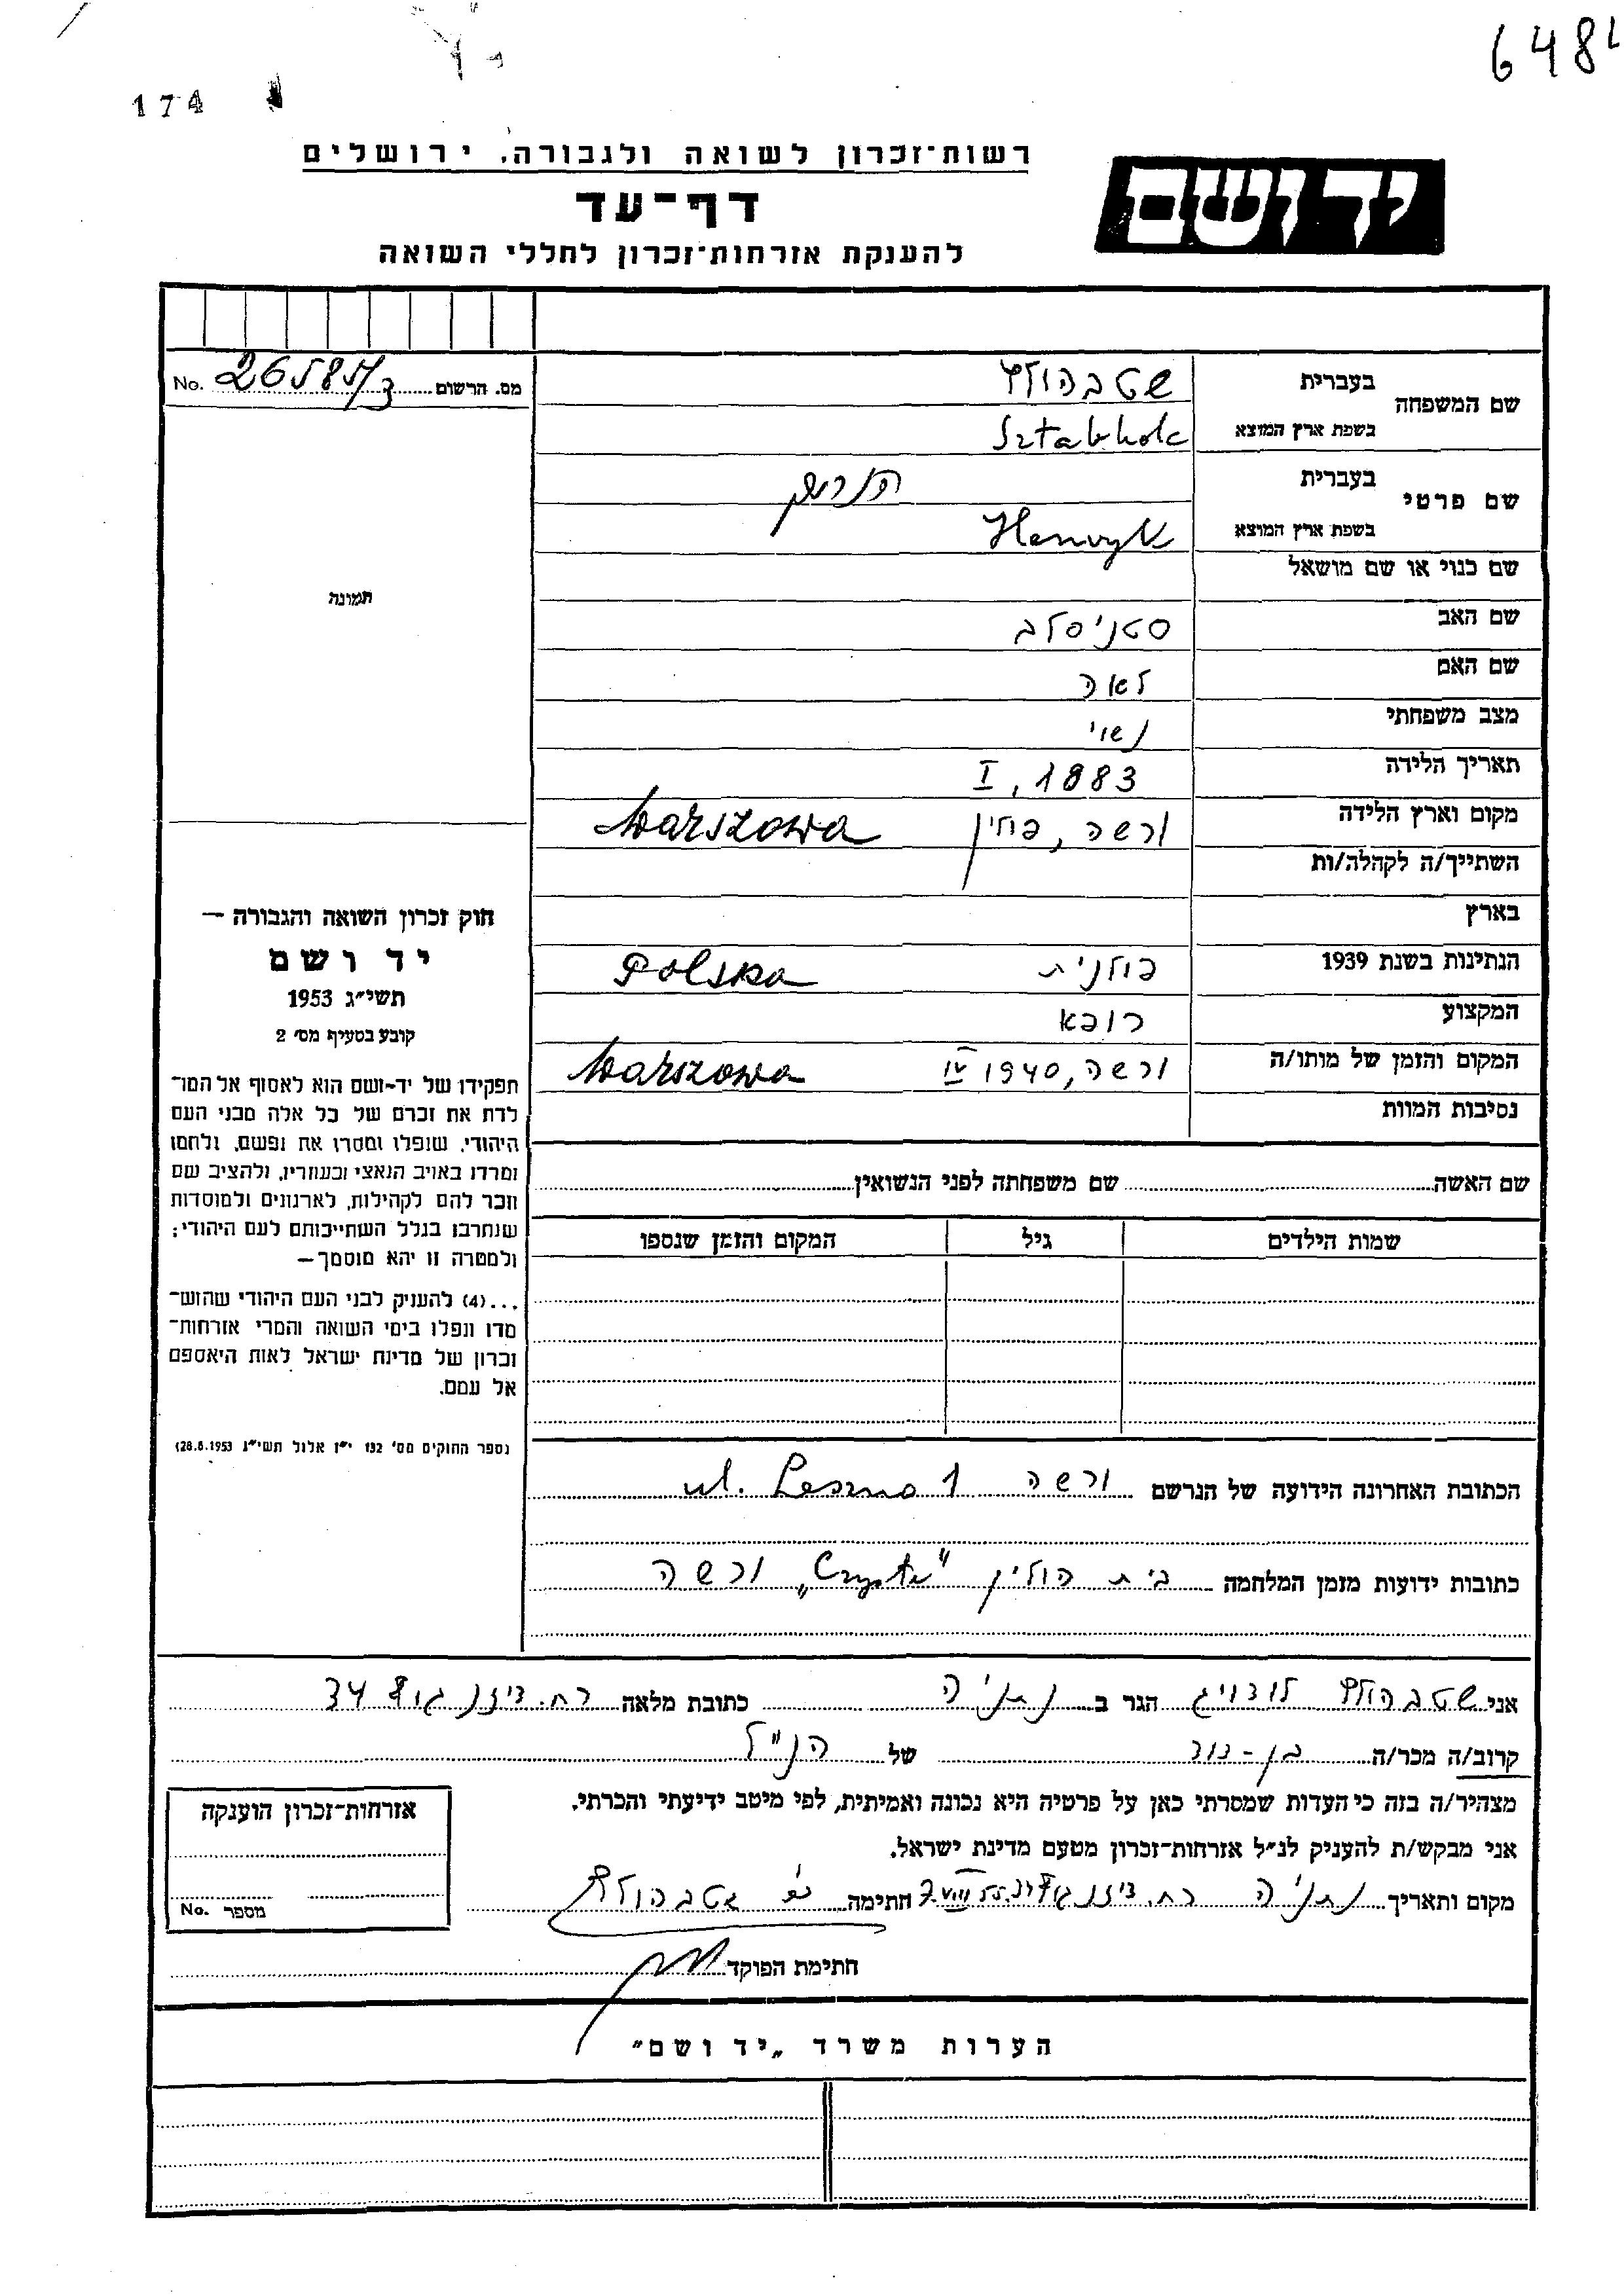 6481
174
רשות־זכרון לשואה ולגבורה, ירושלים
יד ושם
דף־עד
להענקת אזרחות־זכרון לחללי השואה
מס. הרשום No.
שם המשפחה
בעברית שטבהולץ
בשפת ארץ המוצא Sztabholc
שם פרטי
בעברית הנריק
בשפת ארץ המוצא Henryk
שם כנוי או שם מושאל
שם האב סטניסלב
שם האם לאה
מצב משפחתי נשוי
תאריך הלידה I, 1883
מקום וארץ הלידה ורשה, פולין Warszawa
השתייך/ה לקהלה/ות
בארץ
הנתינות בשנת 1939 פולנית Polska
המקצוע רופא
המקום והזמן של מותו/ה ורשה, 1940 IV Warszawa
נסיבות המוות
תמונה
חוק זכרון השואה והגבורה —
יד ושם
תשי״ג 1953
קובע בסעיף מס׳ 2
תפקידו של יד-ושם הוא לאסוף אל המו־
לדת את זכרם של כל אלה מבני העם
היהודי, שנפלו ומסרו את נפשם, ולחמו
ומרדו באויב הנאצי ובעוזריו, ולהציב שם
וזכר להם לקהילות, לארגונים ולמוסדות
שנחרבו בגלל השתייכותם לעם היהודי;
ולמטרה זו יהא מוסמך —
...(4) להעניק לבני העם היהודי שהוש־
מדו ונפלו בימי השואה והמרי אזרחות־
זכרון של מדינת ישראל לאות היאספם
אל עמם.
(ספר החוקים מס׳ 132 י״ז אלול תשי״ג 28.8.1953)
שם האשה שם משפחתה לפני הנשואין
שמות הילדים גיל המקום והזמן שנספו
הכתובת האחרונה הידועה של הנרשם ורשה ul. Leszno 1
כתובות ידועות מזמן המלחמה בית חולין "Czyste" ורשה
אני שטבהולץ לודויג הגר ב נתניה כתובת מלאה רח. דיזנגוף 34
קרוב/ה מכר/ה בן-דוד של הנ״ל
מצהיר/ה בזה כי העדות שמסרתי כאן על פרטיה היא נכונה ואמיתית, לפי מיטב ידיעתי והכרתי.
אני מבקש/ת להעניק לנ״ל אזרחות־זכרון מטעם מדינת ישראל.
מקום ותאריך נתניה רח. דיזנגוף 7.VIII 55 חתימה שטבהולץ
חתימת הפוקד
אזרחות־זכרון הוענקה
מספר No.
הערות משרד „יד ושם״